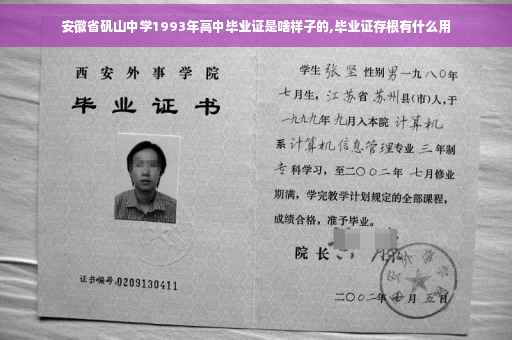 安徽省矾山中学1993年高中毕业证是啥样子的,毕业证存根有什么用
西安外事学院
毕业证书
证书编号:0209130411
学生 张坚 性别男 一九八〇年
七月生, 江苏省 苏州县(市)人,于
一九九九年 九月入本院 计算机
系 计算机信息管理专业 三 年制
专 科学习, 至二〇〇二年 七月修业
期满, 学完教学计划规定的全部课程,
成绩合格, 准予毕业。
院长
二〇〇二年 月 五日